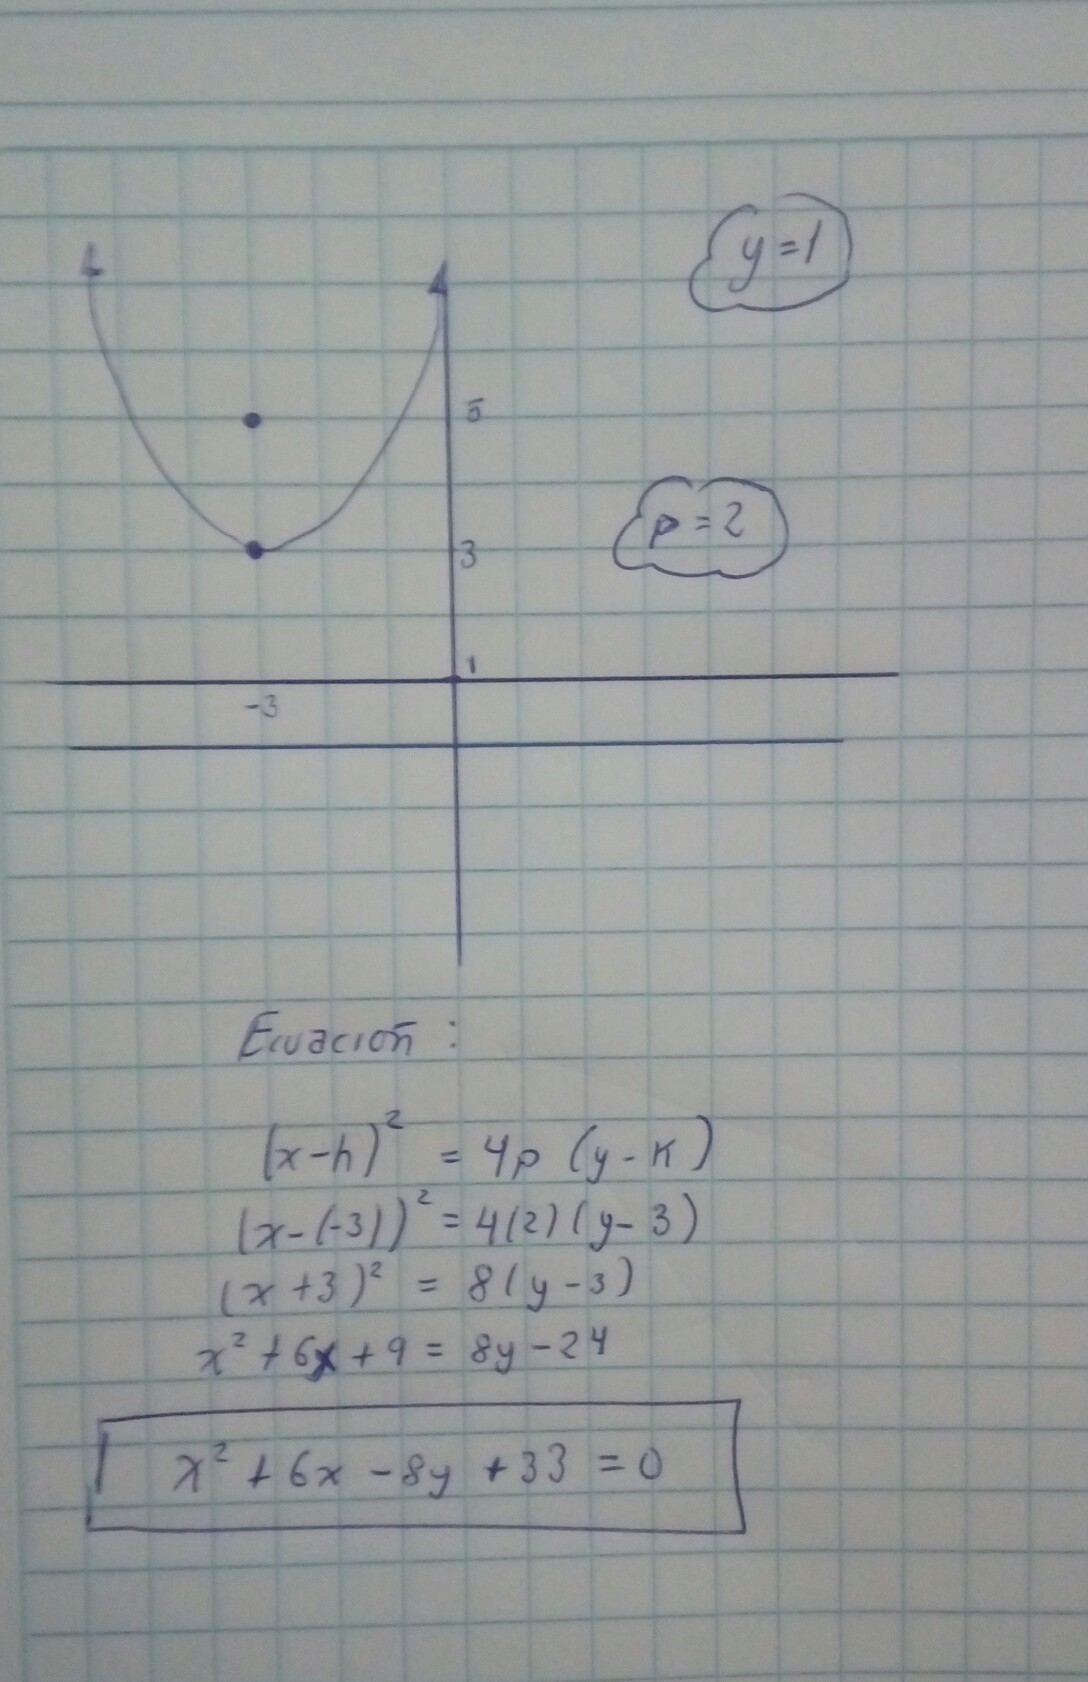 y=1
5
p=2
3
1
-3
Ecuación :
(x-h)² = 4p (y-k)
(x-(-3))² = 4(2)(y-3)
(x+3)² = 8(y-3)
x² + 6x + 9 = 8y - 24
x² + 6x - 8y + 33 = 0